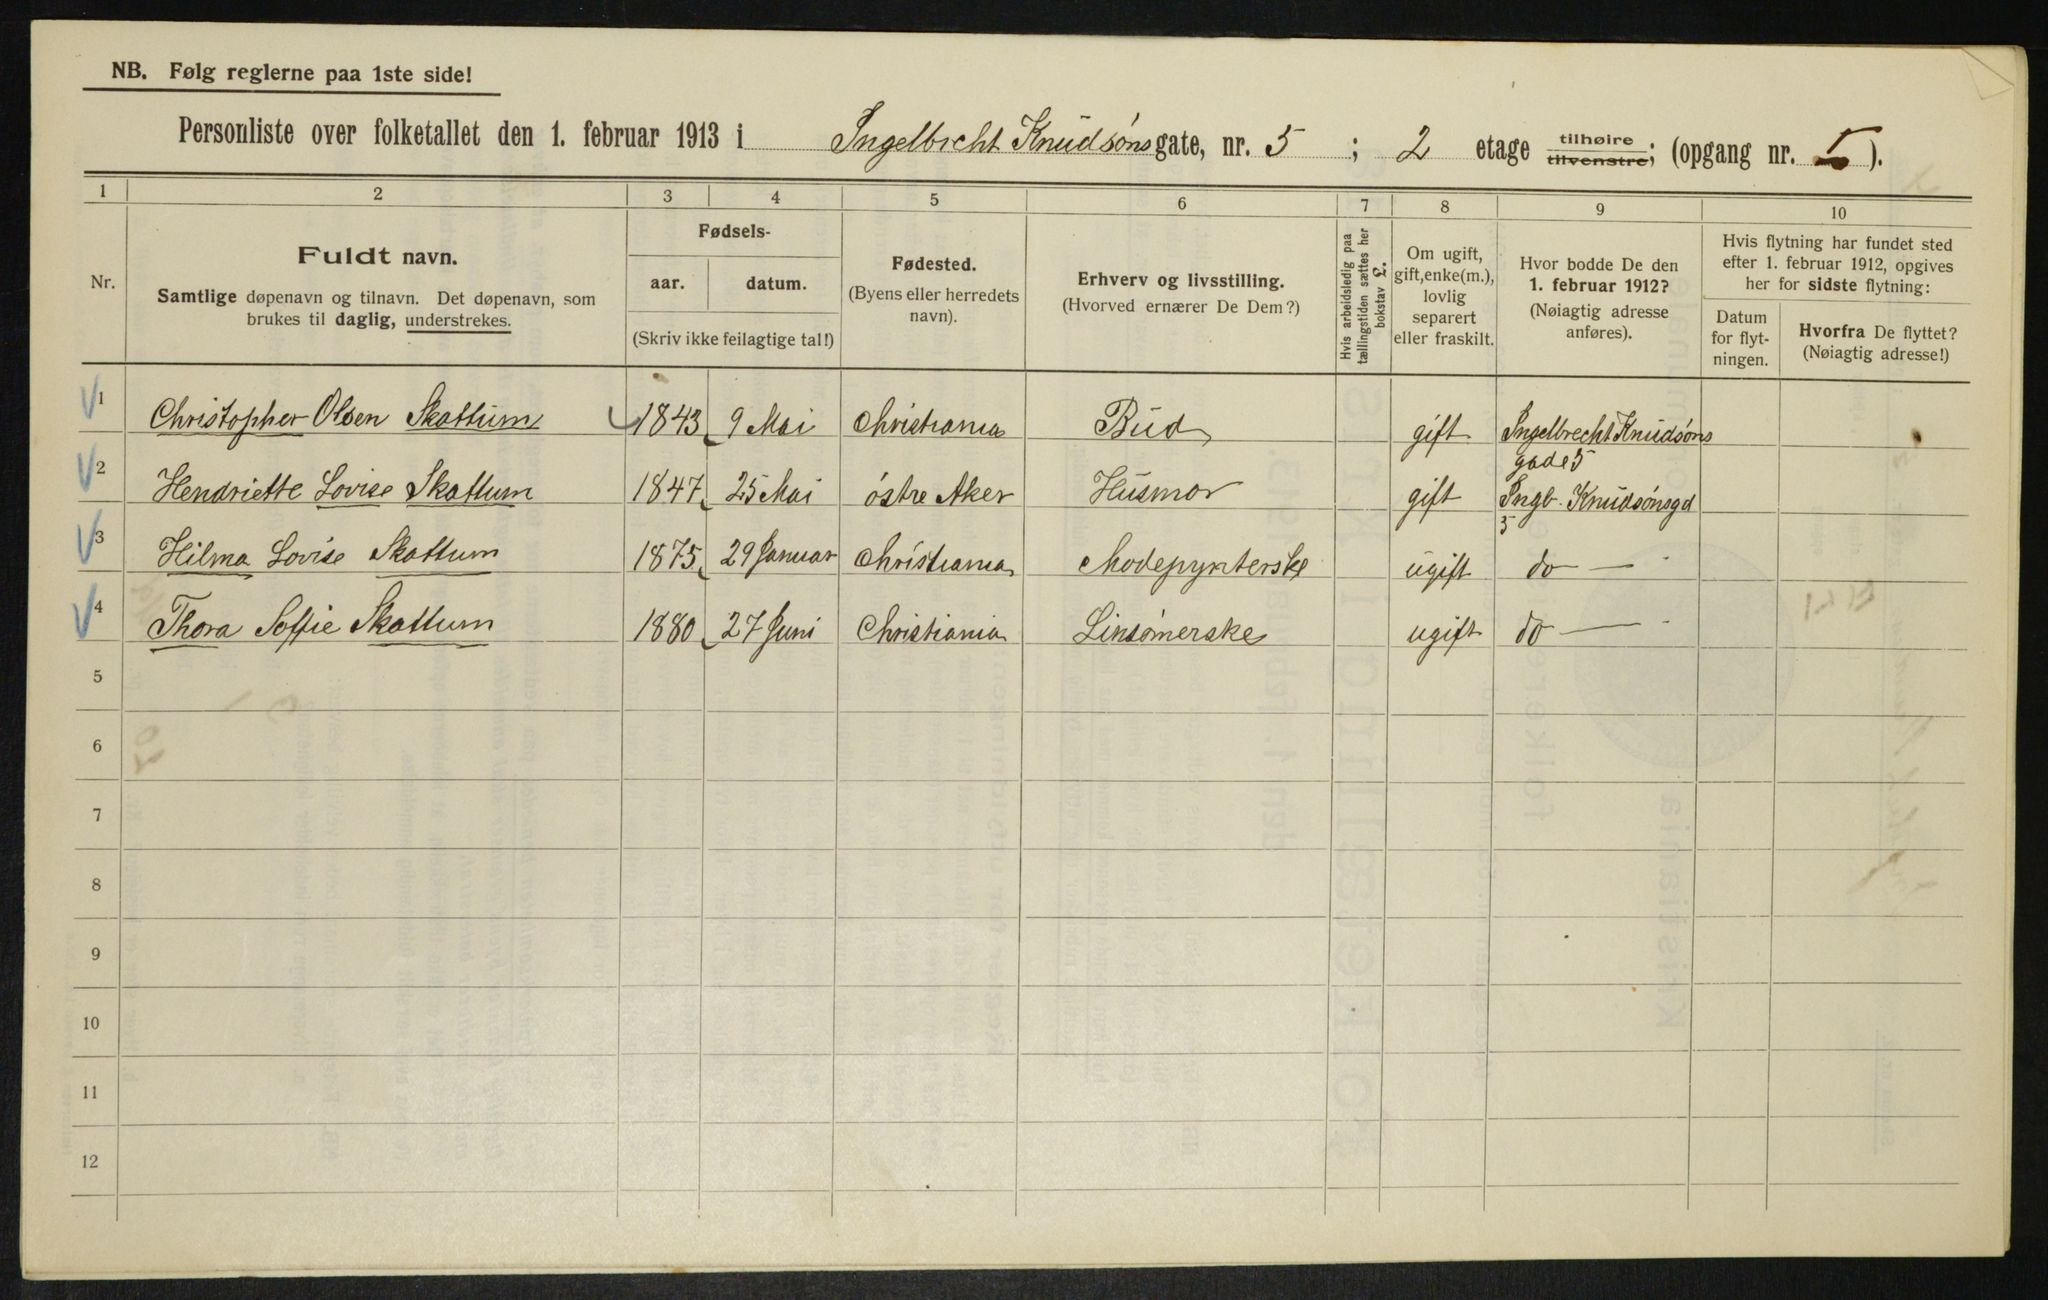 NB. Følg reglerne paa 1ste side!
Personliste over folketallet den 1. februar 1913 i Ingelbrcht Knudsøns gate, nr. 5 ; 2 etage tilhøire tilvenstre; (opgang nr. I ).
1 2 3 4 5 6 7 8 9 10
Nr.
Fuldt navn.
Samtlige døpenavn og tilnavn. Det døpenavn, som
brukes til daglig, understrekes.
Fødsels-
aar. datum.
(Skriv ikke feilagtige tal!)
Fødested.
(Byens eller herredets
navn).
Erhverv og livsstilling.
(Hvorved ernærer De Dem?)
Hvis arbeidsledig paa
tællingstiden sættes her
bokstav £.
Om ugift,
gift, enke(m.),
lovlig
separert
eller fraskilt.
Hvor bodde De den
1. februar 1912?
(Nøiagtig adresse
anføres).
Hvis flytning har fundet sted
efter 1. februar 1912, opgives
her for sidste flytning:
Datum
for flyt-
ningen.
Hvorfra De flyttet?
(Nøiagtig adresse!)
1 Christopher Olsen Skattum 1843 9 Mai Christiania Bud gift Ingelbrecht Knudsøns
gade 5
2 Hendriette Lovise Skattum 1847 25 Mai østre Aker Husmor gift Ingb. Knudsønsgd
5
3 Hilma Lovise Skattum 1875 29 Januar Christiania Modepynterske ugift do —
4 Thora Soffie Skattum 1880 27 Juni Christiania Linsømerske ugift do —
5
6
7
8
9
10
11
12